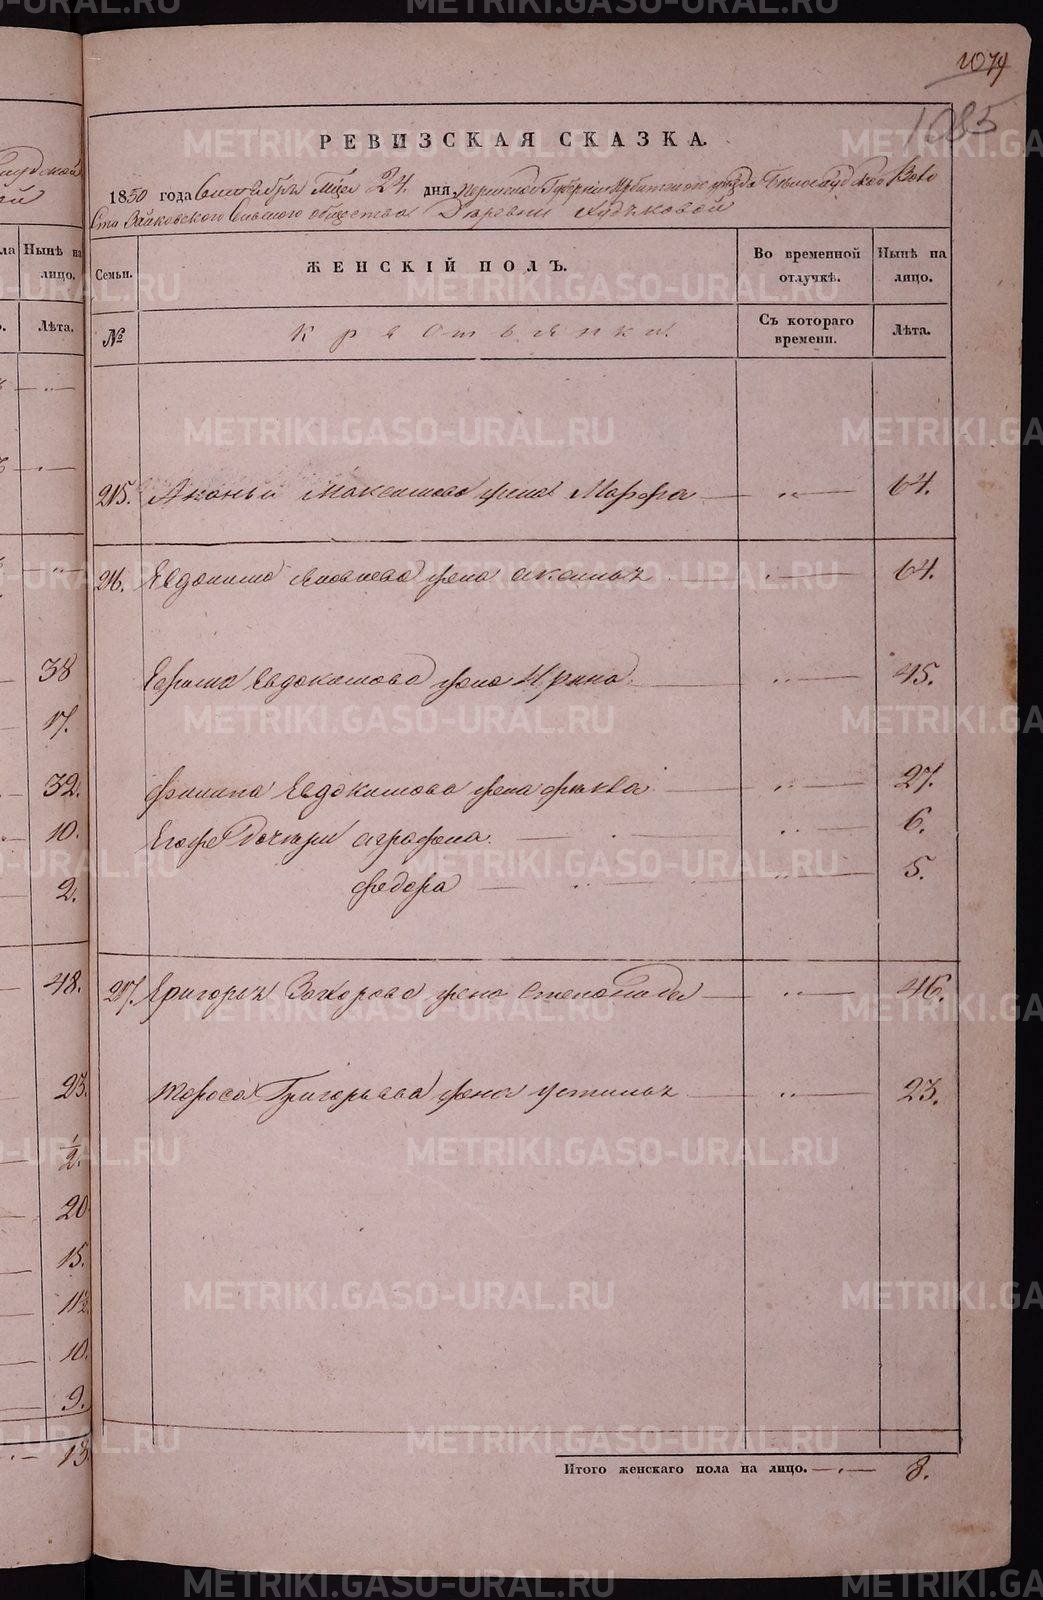 METRIKI.GASO-URAL.RU
1079
1085
РЕВИЗСКАЯ СКАЗКА.
1850 года Сентября Мца 24 дня, Пермской Губернии Ирбитского уезда Белослудской Воло
сти Зайковского Сельского общества Деревни
Семьи.
ЖЕНСКІЙ ПОЛЪ.
Во временной отлучкѣ.
Нынѣ на лицо.
№
Крестьянки
Съ котораго времени.
Лѣта.
215. Ананьи Максимова жена Марфа — " — 64.
216. Евдокима Яковлева жена Аксинья — " — 64.
Ефима Евдокимова жена Ирина — " — 45.
Филипа Евдокимова жена Фекла — " — 27.
Его Дочери Аграфена — " — 6.
Федора — " — 5.
217. Григорья Захарова жена Степанида — " — 46.
Тараса Григорьева жена Устинья — " — 23.
Итого женскаго пола на лицо. — 8.
Нынѣ на лицо.
Лѣта.
38
17.
32.
10.
2.
48.
23.
1/2.
20
15.
11 1/2
10.
9.
13